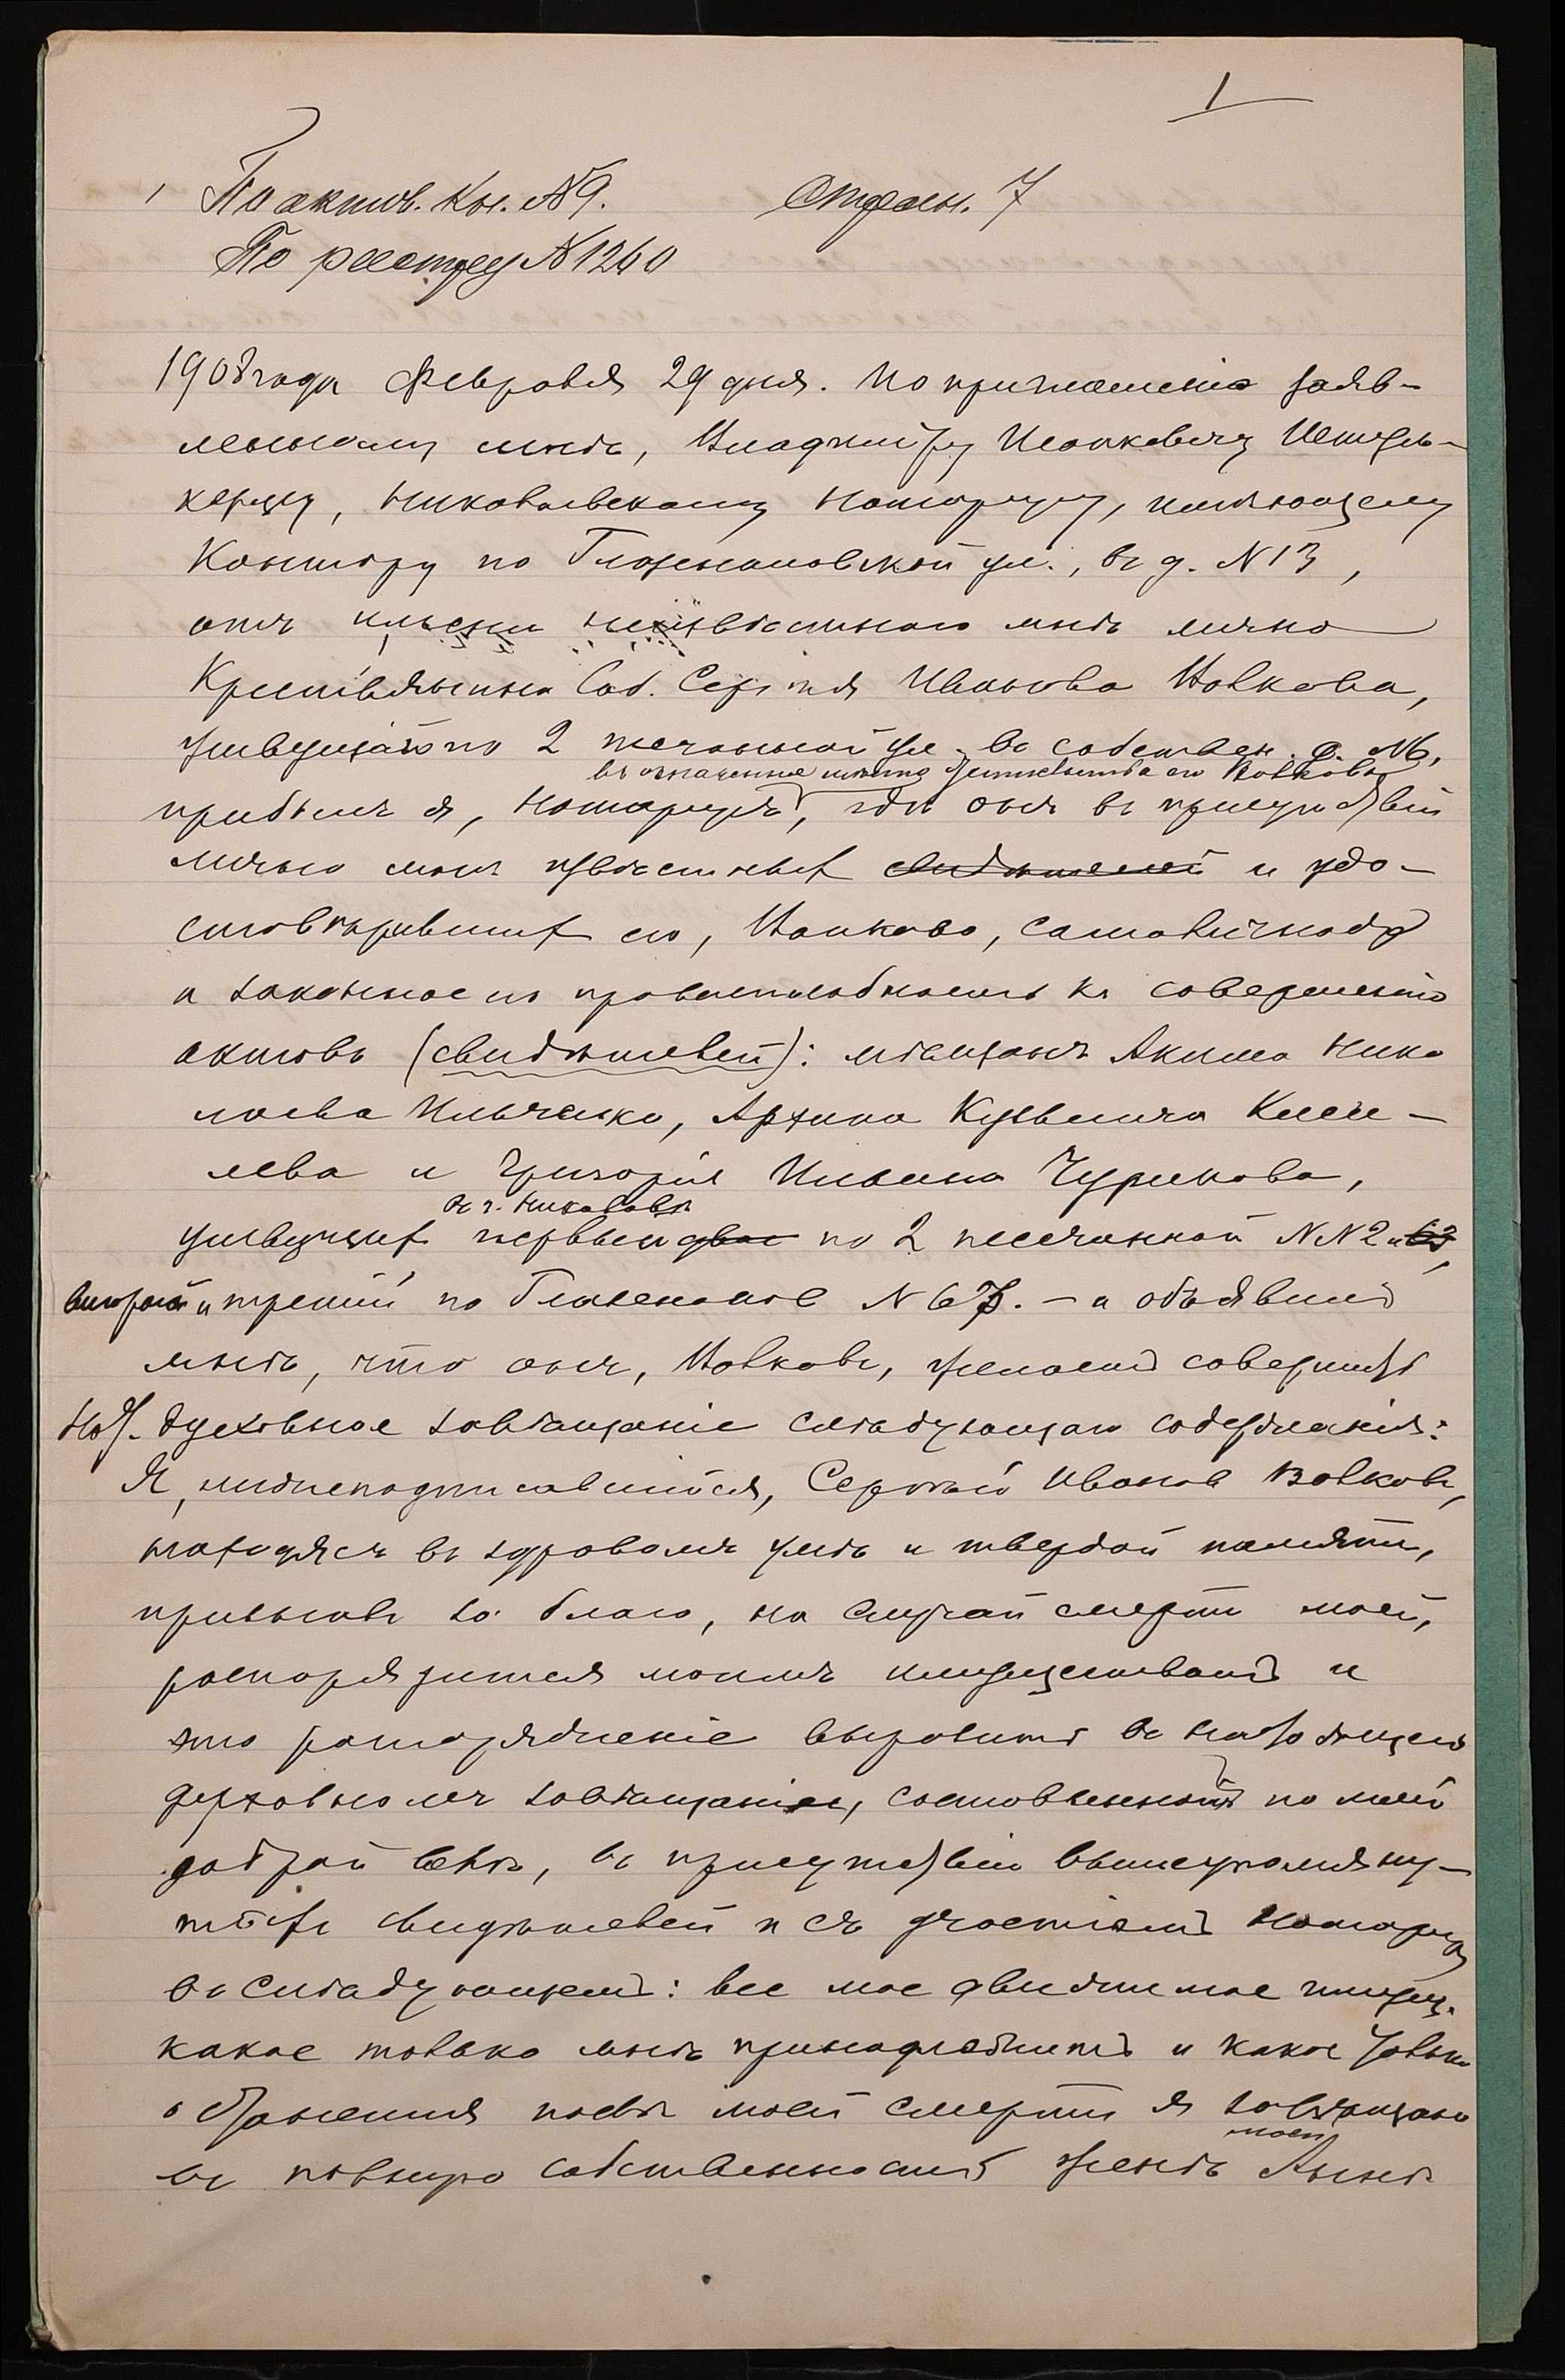 1
По актов. Кн. № 9. Стран. 7
По реестру № 1260
1908 года Февраля 29 дня. По приглашенію заяв-
ленному мнѣ, Владиміру Исаковичу
Николаевскому Нотаріусу, имѣющему
Контору по Глазенаповской ул., въ д. № 13,
отъ имени неизвѣстнаго мнѣ лично
Крестьянина Соб. Сергѣя Иванова Волкова,
живущаго по 2 песчанной ул. въ собствен. д. № 6,
въ означенное мѣсто жительства его Волкова
прибылъ я, Нотаріусъ, гдѣ онъ въ присутствіи
лично мнѣ извѣстныхъ свидѣтелей и удо-
стовѣрившихъ его, Волкова, самоличность
и законную его правоспособность къ совершенію
актовъ (свидѣтелей): мѣщанъ Акима Нико
лаева Ильченко, Архипа Кузьмича Кисе-
лева и Григорія Чурикова,
въ г. Николаевѣ
живущихъ первый двое по 2 песчанной № № 2 и 63,
второй и третій по Глазенапов № 67. - и объявилъ
мнѣ, что онъ, Волковъ, желаетъ совершить
Нот. духовное завѣщаніе слѣдующаго содержанія:
Я, нижеподписавшійся, Сергѣй Иванов Волковъ,
находясь въ здравомъ умѣ и твердой памяти,
призналъ за благо, на случай смерти моей,
распорядиться моимъ имуществомъ и
это распоряженіе выразить въ настоящемъ
духовномъ завѣщаніи, составленномъ по моей
доброй волѣ, въ присутствіи вышеупомяну-
тыхъ свидѣтелей и съ участіемъ Нотаріуса
въ слѣдующемъ: все мое движимое имущ.
какое только мнѣ принадлежитъ и какое только
останется послѣ моей смерти я завѣщаю
моей
въ полную собственность женѣ Аннѣ